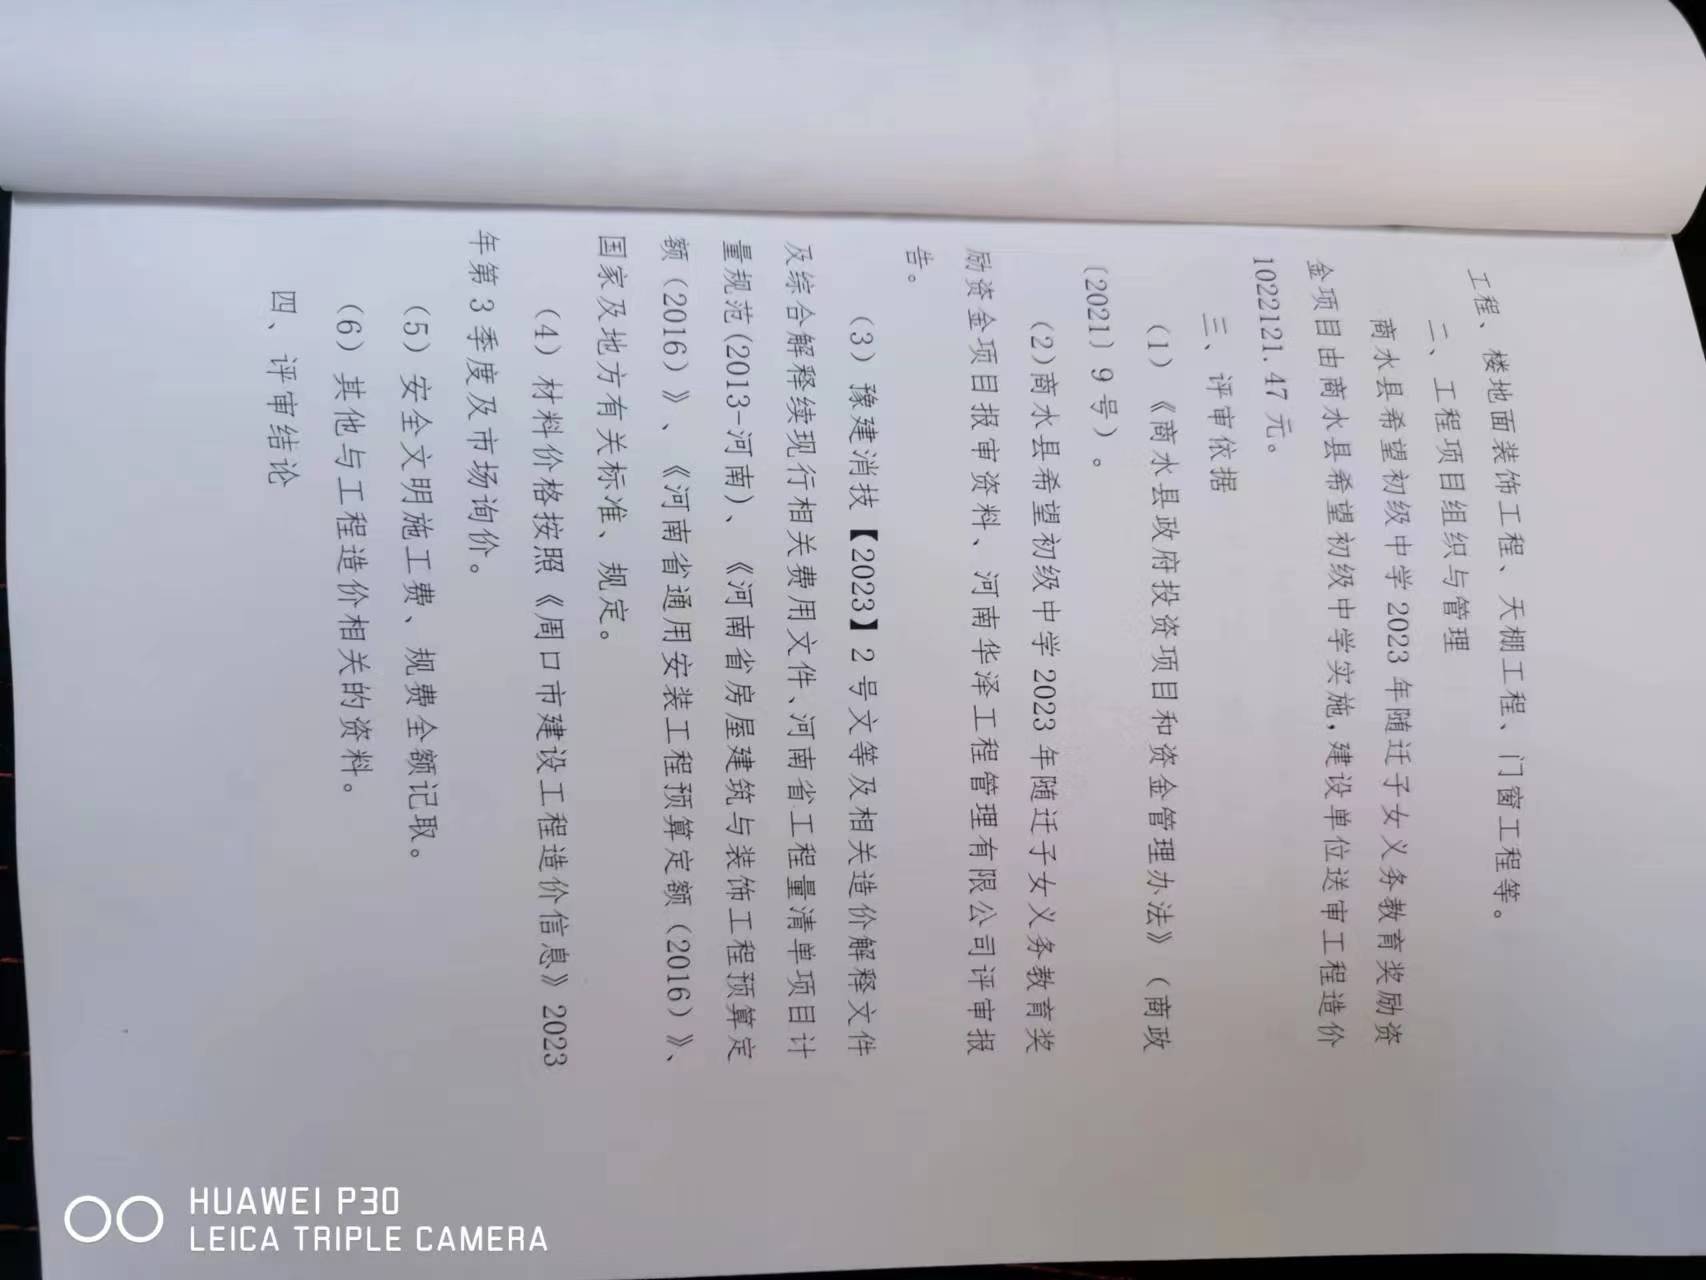 工程、楼地面装饰工程、天棚工程、门窗工程等。
二、工程项目组织与管理
商水县希望初级中学2023年随迁子女义务教育奖励资
金项目由商水县希望初级中学实施，建设单位送审工程造价
1022121.47元。
三、评审依据
（1）《商水县政府投资项目和资金管理办法》（商政
〔2021〕9号）。
（2）商水县希望初级中学2023年随迁子女义务教育奖
励资金项目报审资料、河南华泽工程管理有限公司评审报
告。
（3）豫建消技【2023】2号文等及相关造价解释文件
及综合解释续现行相关费用文件、河南省工程量清单项目计
量规范(2013-河南)、《河南省房屋建筑与装饰工程预算定
额（2016）》、《河南省通用安装工程预算定额（2016）》、
国家及地方有关标准、规定。
（4）材料价格按照《周口市建设工程造价信息》2023
年第3季度及市场询价。
（5）安全文明施工费、规费全额记取。
（6）其他与工程造价相关的资料。
四、评审结论
HUAWEI P30
LEICA TRIPLE CAMERA